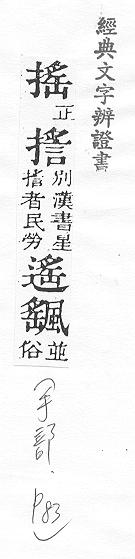 經典文字辨證書
搖
正
別漢書星
者民勞
遙
颻
並
俗
(手部.P83)